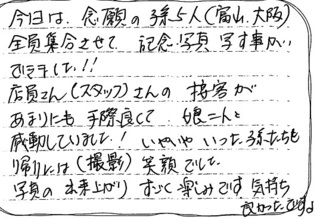 今日は、念願の孫5人(富山、大阪)
全員集合させて 記念写真 写す事が、
できました!!
店員さん(スタッフ)さんの 接客が
あまりにも 手際良くて 娘二人と
感動していました! いやいや いった孫たちも
帰りには(撮影)笑顔でした。
写真の 出来上がり すごく楽しみです 気持ち
良かったですよ